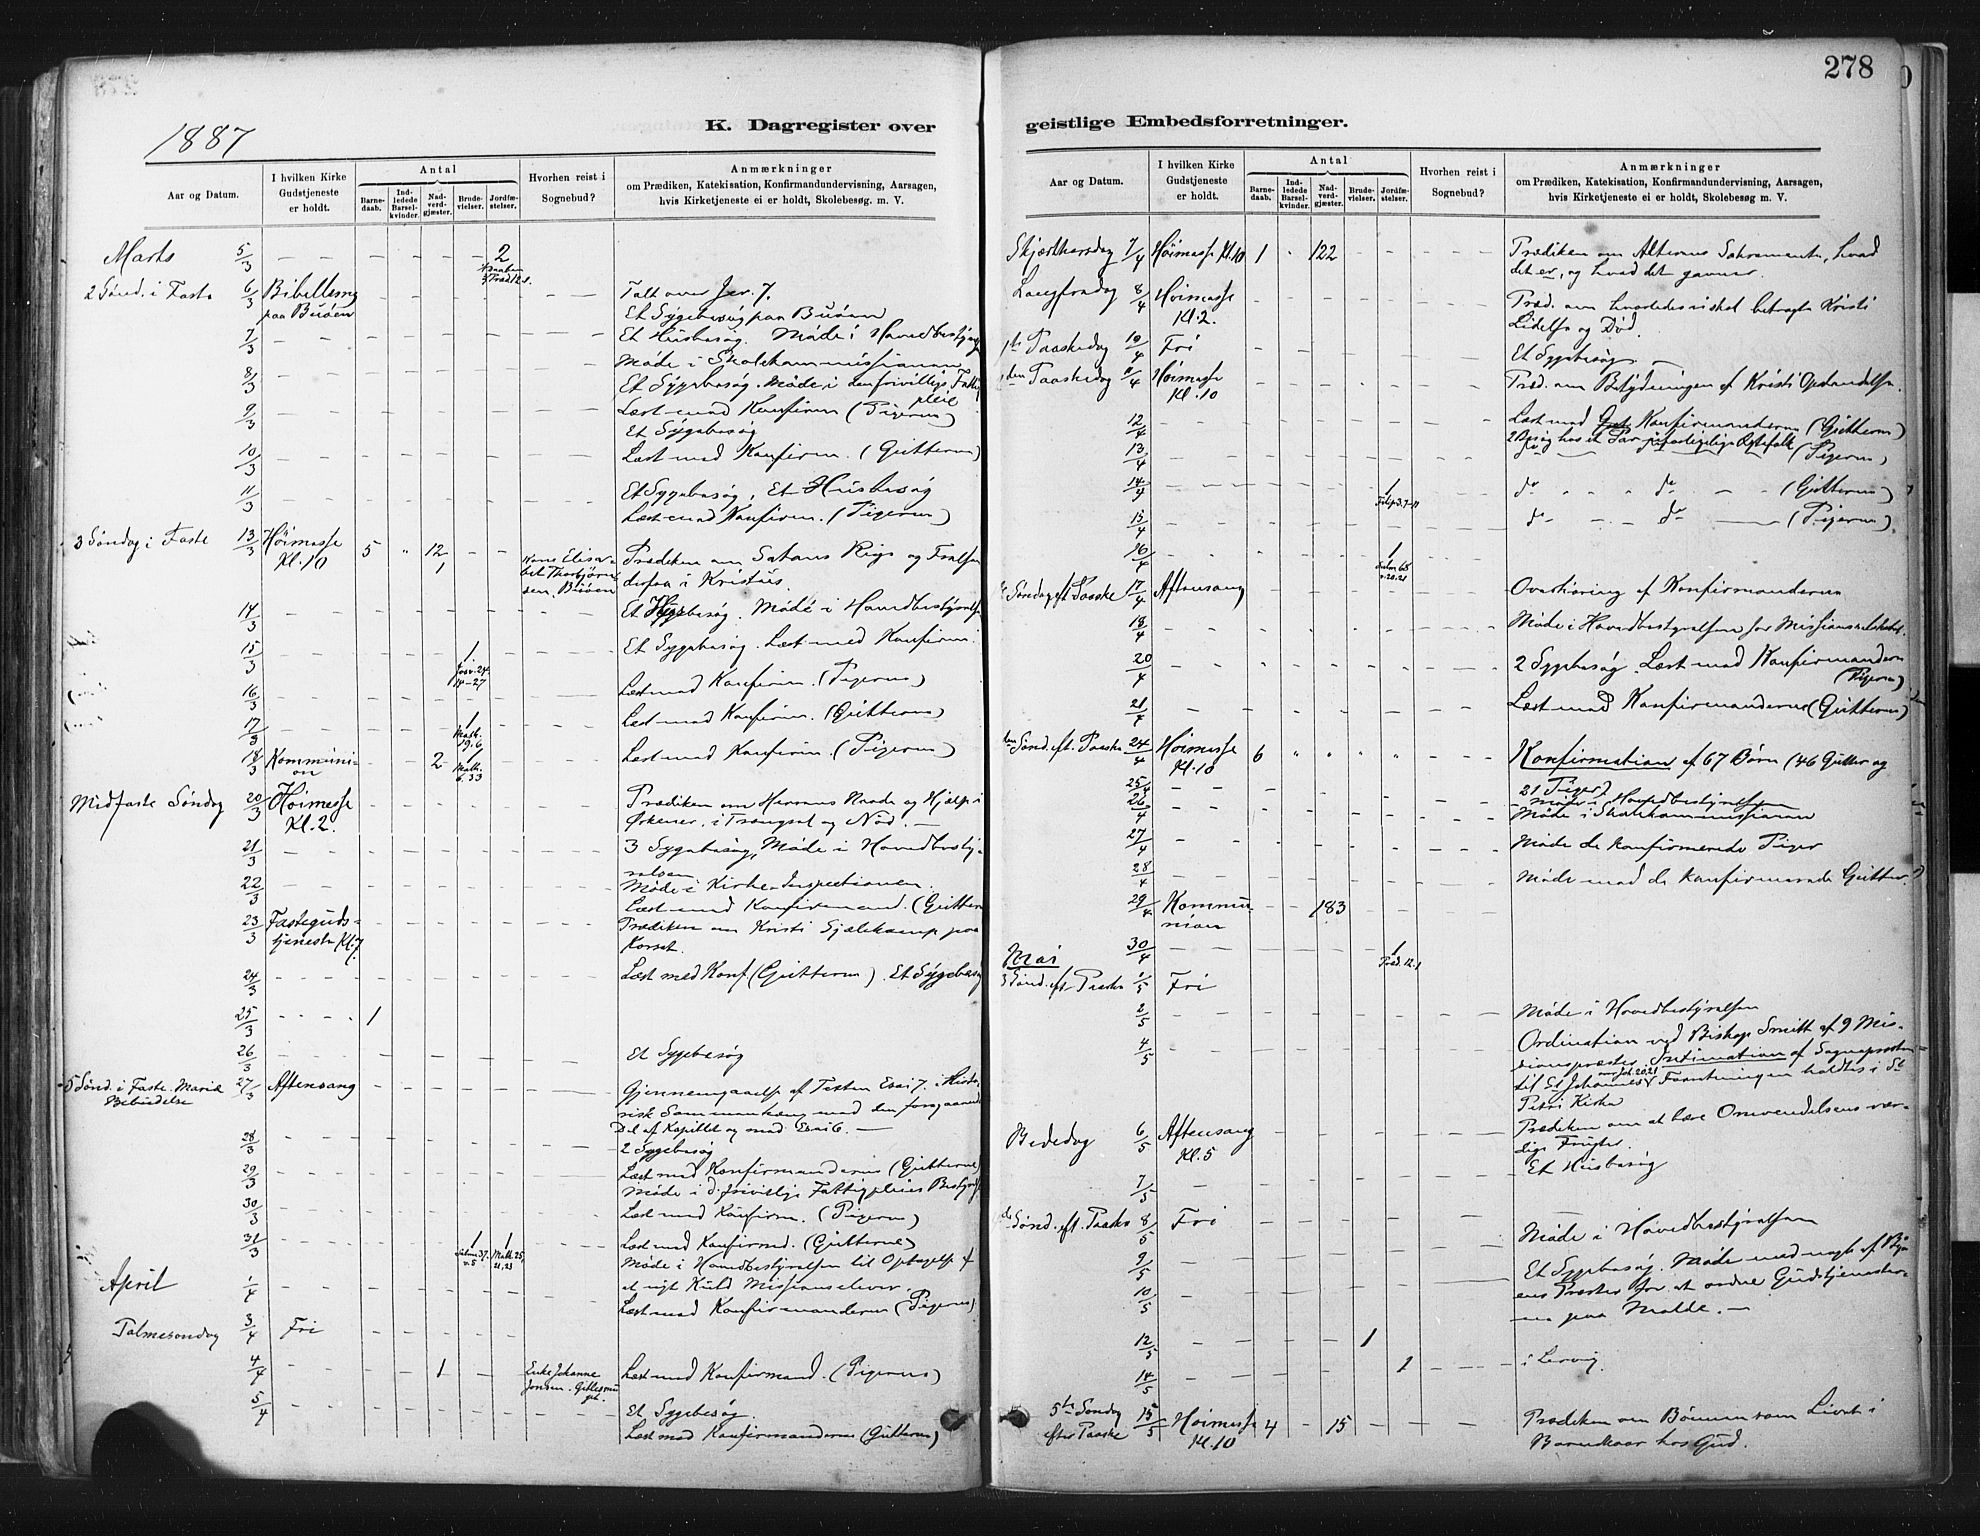 278
1887
K. Dagregister over
geistlige Embedsforretninger.
Aar og Datum.
I hvilken Kirke Gudstjeneste er holdt.
Antal
Barnedaab.
Indledede Barselkvinder.
Nadverdgjæster.
Brudevielser.
Jordfæstelser.
Hvorhen reist i Sognebud?
Anmærkninger
om Prædiken, Katekisation, Konfirmandundervisning, Aarsagen,
hvis Kirketjeneste ei er holdt, Skolebesøg. m. V.
Marts 5/3 2
2 Sønd. i Faste 6/3 Bibellæsng paa Buøen Talt over Jer. 7.
Et Sygebesøg paa Buøen
7/3 Et Husbesøg. Møde i Hovedbestyr
Møde i Skolekommissionen
8/3 Et Sygebesøg. Møde i den frivillige Fattig
pleie
9/3 Læst med Konfirm (Pigerne)
Et Sygebesøg
10/3 Læst med Konfirm. (Gutterne)
11/3 Et Sygebesøg, Et Husbesøg
Læst med Konfirm. (Pigerne)
3 Søndag i Faste 13/3 Høimesse Kl. 10 5 " 12 Prædiken om Satans Rige og Frelsen
1 derfra i Kristus
14/3 Et Sygebesøg. Møde i Hovedbestyrelse
15/3 1 Et Sygebesøg. Læst med Konfirm.
Josv. 24. 14-27
16/3 Læst med Konfirm. (Pigerne)
17/3 1 Læst med Konfirm. (Gutterne)
Math. 19.6
18/3 Kommunion 2 1 Læst med Konfirm. (Pigerne)
Math. 6.33
Midfaste Søndag 20/3 Høimesse Kl. 2. Prædiken om Herrens Naade og Hjælp i
Ørkener, i Trængsel og Nød. —
21/3 3 Sygebesøg, Møde i Hovedbesty-
relsen
22/3 Møde i Kirke-Inspectionen.
Læst med Konfirmand. (Gutterne
23/3 Fastegudstjeneste Kl. 7. Prædiken om Kristi Sjælekamp paa
Korset.
24/3 Læst med Konf (Gutterne). Et Sygebesøg
25/3 1
26/3 Et Sygebesøg
5 Sønd. i Faste. Mariæ Bebudelse 27/3 Aftensang Gjennemgaaelse af Texten Esai 7. i Histo
risk Sammenhæng med den foregaaende
Del af Kapitlet og med Esai 6. —
28/3 2 Sygebesøg
29/3 Læst med Konfirmanderne (Gutterne)
Møde i d. frivillige Fattigpleies Bestyrelse
30/3 Læst med Konfirm. (Pigerne)
31/3 1 1 Læst med Konfirmd. (Gutterne)
Salme 37. v. 5 Math. 25, 21, 23
April 1/4 Møde i Hovedbestyrelsen til Optagelse af
et nyt Kuld Missionselever.
Læst med Konfirmanderne (Pigerne)
Palmesøndag 3/4 Fri
4/4 1 Enke Johanne Jonsen. Læst med Konfirmand. (Pigerne)
5/4 Et Sygebesøg.
Læst med Konfirmanderne (Gutterne)
Aar og Datum.
I hvilken Kirke Gudstjeneste er holdt.
Antal
Barnedaab.
Indledede Barselkvinder.
Nadverdgjæster.
Brudevielser.
Jordfæstelser.
Hvorhen reist i Sognebud?
Anmærkninger
om Prædiken, Katekisation, Konfirmandundervisning, Aarsagen,
hvis Kirketjeneste ei er holdt, Skolebesøg m. V.
Skjærthorsdag 7/4 Høimesse Kl. 10 1 " 122 Prædiken om Alterens Sakramente, hvad
det er, og hvad det gavner.
Langfredag 8/4 Høimesse Kl. 2. Præd. om hvorledes vi skal betragte Kristi
Lidelse og Død.
1ste Paaskedag 10/4 Fri Et Sygebesøg.
den Paaskedag 11/4 Høimesse Kl. 10 Præd. om Betydningen af Kristi Opstandelse.
12/4 Læst med Konfirmanderne (Gutterne)
2 Besøg hos et Par Ægtefolk
13/4 (Pigerne)
14/4 1 do do (Gutterne)
15/4 do do (Pigerne)
16/4 1
Salm 68 v. 20.21
Søndag eft. Paaske 17/4 Aftensang Overhøring af Konfirmanderne
18/4 Møde i Hovedbestyrelsen for Missionsselskabet.
20/4 2 Sygebesøg. Læst med Konfirmanderne
(Pigerne)
21/4 Læst med Konfirmanderne (Gutterne)
den Sønd. eft. Paaske 24/4 Høimesse Kl. 10 6 " " " " Konfirmation af 67 Børn (46 Gutter og
21 Piger)
25/4 Møde i Hovedbestyrelsen
26/4 Møde i Skolekommissionen
27/4 Møde de konfirmerede Piger
28/4 Møde med de konfirmerede Gutter.
29/4 Kommunion 183
30/4 1
Præd. 12.1
Mai
3 Sønd. eft. Paaske 1/5 Fri
2/5 Møde i Hovedbestyrelsen
4/5 Ordination ved Biskop Smitt af 9 Mis-
sionsprester, Intimation af Sogneprester
til St Johannes Forretningen holdtes i St
Petri Kirke
Bededag 6/5 Aftensang Kl. 5 Prædiken om at bære Omvendelsens vær-
dige Frugter.
7/5 Et Husbesøg
Sønd. eft. Paaske 8/5 Fri
9/5 Møde i Hovedbestyrelsen
10/5 Et Sygebesøg. Møde med nogle af By-
ens Prester for at ordne Gudstjenester-
ne paa Molde. —
12/5 1
14/5 1 i Lervig.
5te Søndag efter Paaske 15/5 Høimesse Kl. 10 4 - 15 Prædiken om Bønnen som Livet i
Barnekaar hos Gud.